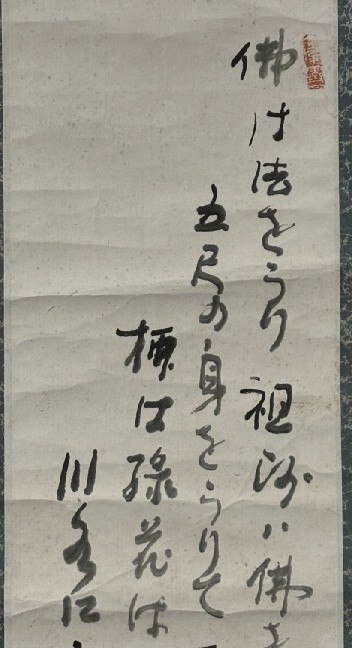 佛は法をうり祖師ハ佛を
五尺の身をうりて
柳は緑花は
川